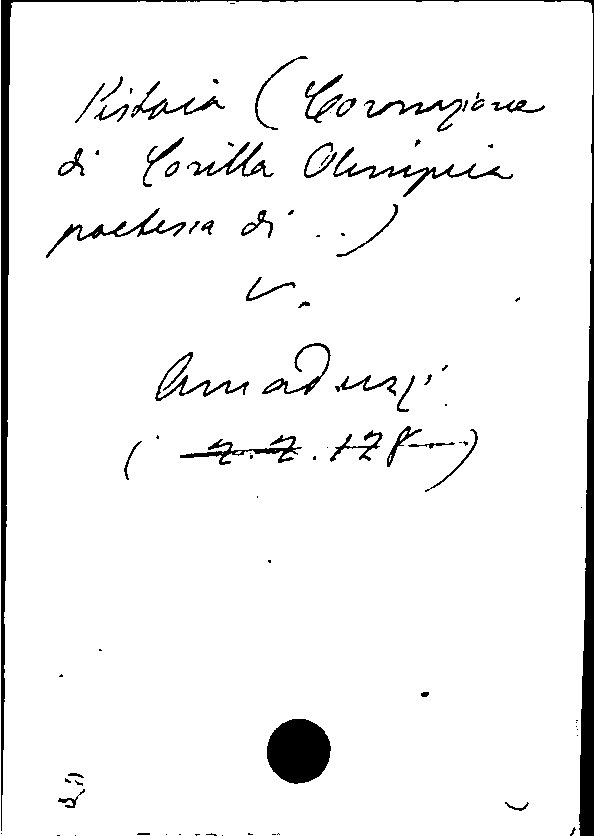 Pistoia (Coronazione
di Corilla Olimpica
poetessa di ..)
V.
Amaduzzi